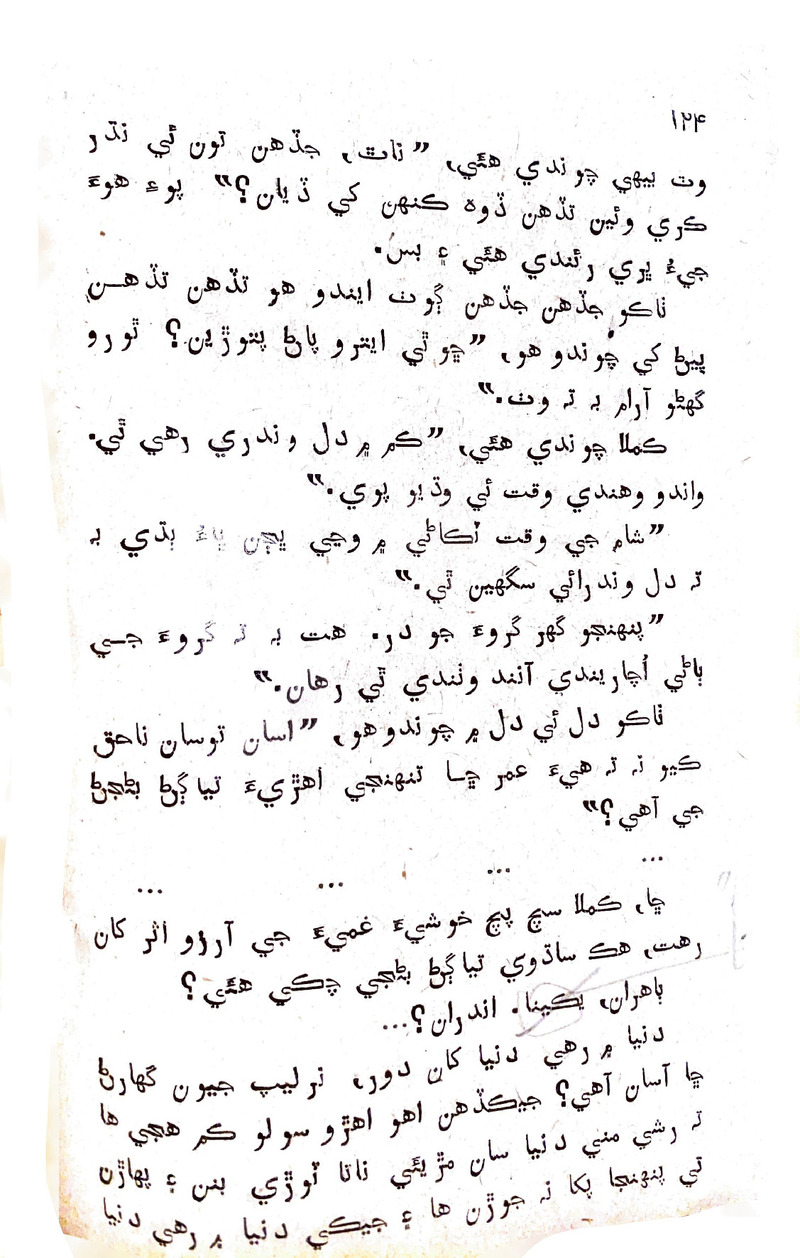 ۱۲۴
وٽ بيهي چوندي هئي، ”ناٿ، جڏهن تون ئي نڌر
ڪري وئين تڏهن ڏوهه ڪنهن کي ڏيان؟“ پوءِ هوءَ
جيءُ ڀري رئندي هئي ۽ بس.
ٺاڪو جڏهن جڏهن ڳوٺ ايندو هو تڏهن تڏهن
ڀيڻ کي چوندو هو، ”ڇو ٿي ايترو پاڻ پتوڙين؟ ٿورو
گهڻو آرام به ته وٺ.“
ڪملا چوندي هئي، ”ڪم ۾ دل وندري رهي ٿي.
واندو وهندي وقت ئي وڌيو پوي.“
”شام جي وقت ٽڪاڻي ۾ وڃي ڀڄن ٻڌي به
ته دل وندرائي سگهين ٿي.“
”پنهنجو گهر گروءَ جو در. هت به ته گروءَ جي
ٻاڻي اُچاريندي آنند وٺندي ٿي رهان.“
ٺاڪو دل ئي دل ۾ چوندو هو، ”اسان توسان ناحق
ڪيو نه ته هيءَ عمر ڇا تنهنجي اهڙيءَ تياڳڻ بڻجڻ
جي آهي؟“
... ... ... ...
ڇا، ڪملا سچ پچ خوشيءَ غميءَ جي آرزو اثر کان
رهت، هڪ ساڌوي تياڳڻ بڻجي چڪي هئي؟
ٻاهران، يڪينا. اندران؟...
دنيا ۾ رهي دنيا کان دور، نرليپ جيون گهارڻ
ڇا آسان آهي؟ جيڪڏهن اهو اهڙو سولو ڪم هجي ها
ته رشي مني دنيا سان مڙيئي ناتا ٽوڙي بنن ۽ پهاڙن
تي پنهنجا پکا نه جوڙن ها ۽ جيڪي دنيا ۾ رهي دنيا